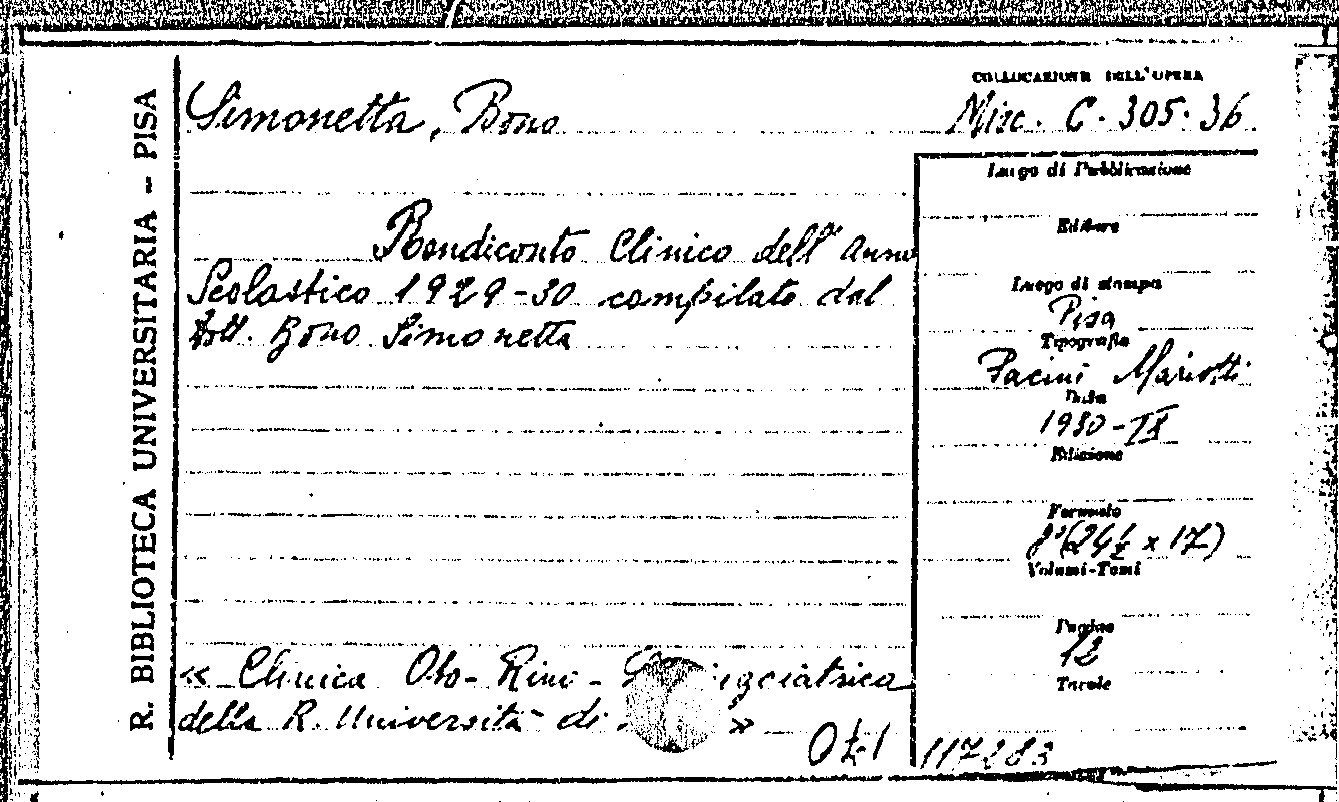 R. BIBLIOTECA UNIVERSITARIA - PISA
COLLOCAZIONE DELL'OPERA
Simonetta, Bono
Misc. C. 305. 36
Luogo di Pubblicazione
Rendiconto Clinico dell'Anno
Scolastico 1929-30 compilato dal
Dott. Bono Simonetta
Editore
Luogo di stampa
Pisa
Tipografia
Pacini Mariotti
Data
1930-IX
Edizione
Formato
8°(24½ x 17)
Volumi-Tomi
Pagine
12
Tavole
« Clinica Oto-Rino-
della R. Università di »
117283